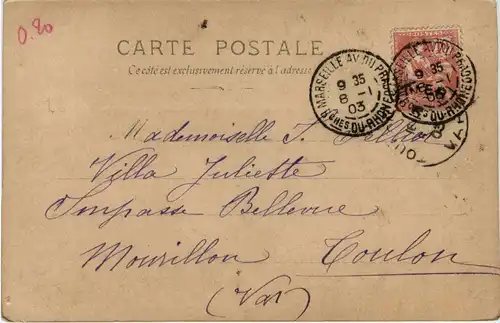 0.80
CARTE POSTALE
Ce côté est exclusivement réservé à l'adresse
POSTES
MARSEILLE AV. DU PRADO
9 35
8 - 1
03
BCHES DU-RHONE
9 35
8
03
TOULON
VAR
Mademoiselle J.
Villa Juliette
Impasse Bellevue
Mourillon Toulon
(Var)